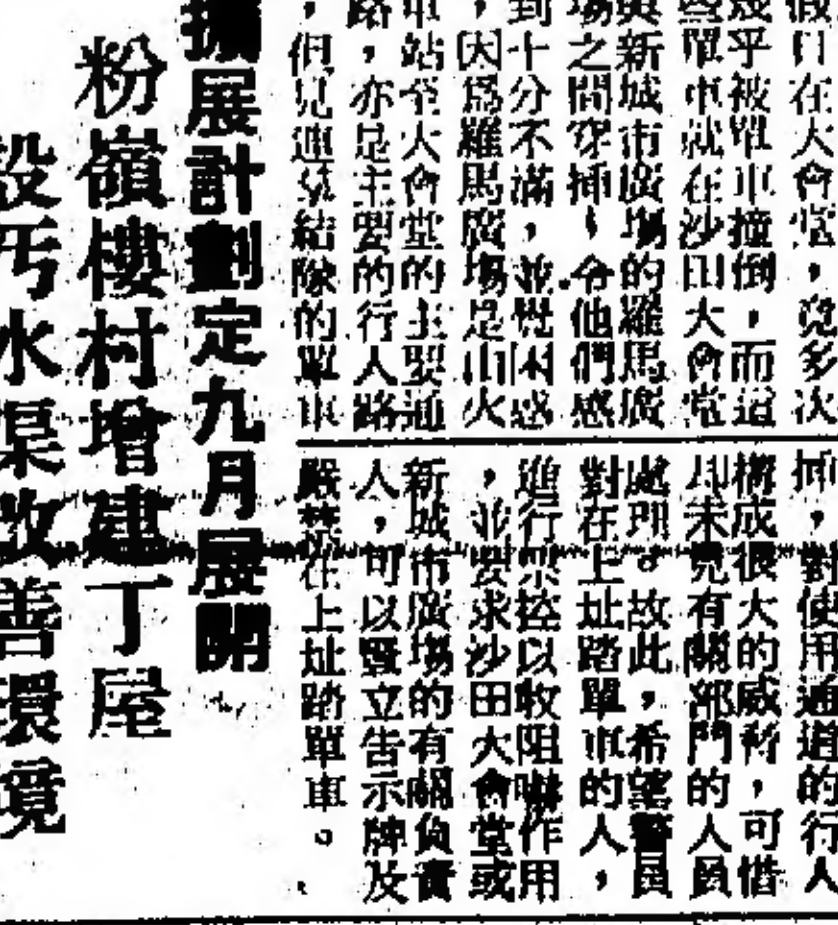 假日在大會堂，多次
幾乎被單車撞倒，而這
些單車就在沙田大會堂
與新城市廣場的羅馬廣
場之間穿插，令他們感
到十分不滿，並覺困惑
，因爲羅馬廣場是由火
車站至大會堂的主要通
路，亦是主要的行人路
，但見連羣結隊的單車
插，對使用通道的行人
構成很大的威脅，可惜
却未見有關部門的人員
處理。故此，希望警員
對在上址踏單車的人，
進行票控以收阻嚇作用
，並要求沙田大會堂或
新城市廣場的有關負責
人，可以豎立告示牌及
嚴禁在上址踏單車。
擴展計劃定九月展開
粉嶺樓村增建丁屋
設汚水渠改善環境